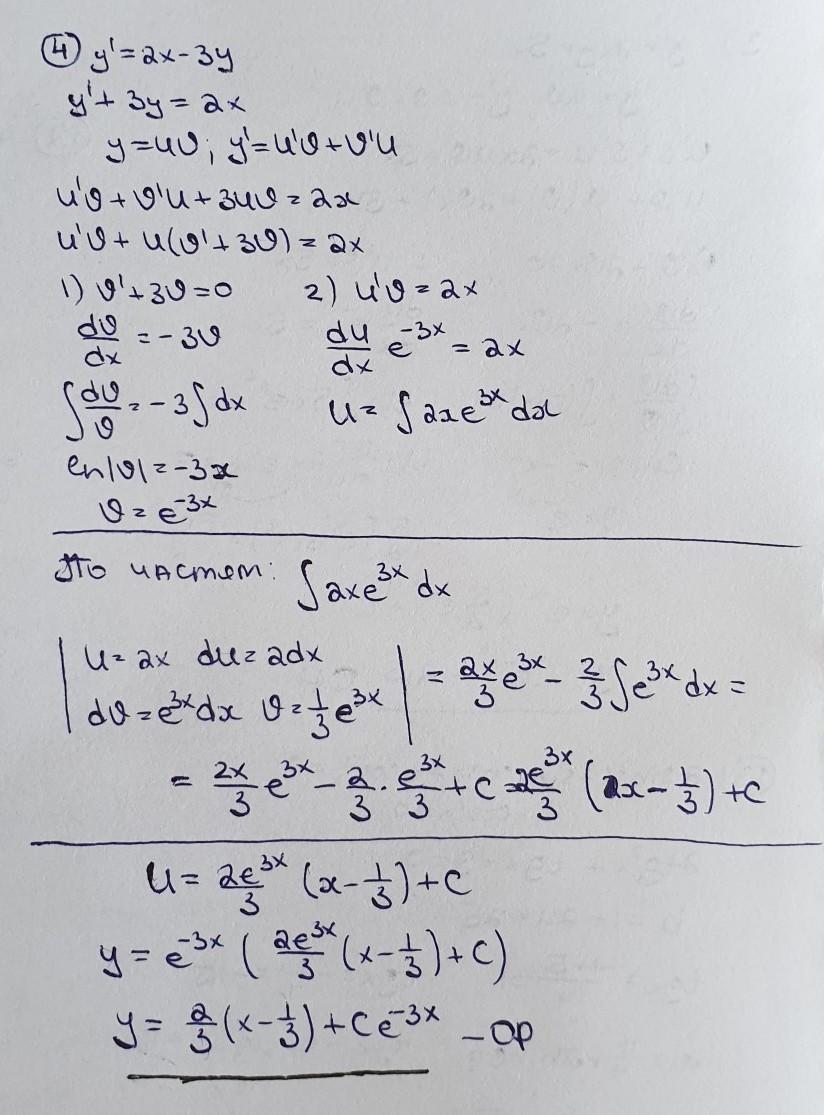 ④ y' = 2x - 3y
y' + 3y = 2x
y = uv; y' = u'v + v'u
u'v + v'u + 3uv = 2x
u'v + u(v' + 3v) = 2x
1) v' + 3v = 0 2) u'v = 2x
dv/dx = -3v du/dx e^{-3x} = 2x
∫ dv/v = -3∫dx u = ∫2xe^{3x}dx
ln|v| = -3x
v = e^{-3x}
По частям: ∫2xe^{3x}dx
| u = 2x du = 2dx
dv = e^{3x}dx v = 1/3 e^{3x} | = 2x/3 e^{3x} - 2/3 ∫e^{3x}dx =
= 2x/3 e^{3x} - 2/3 · e^{3x}/3 + C = 2e^{3x}/3 (x - 1/3) + C
u = 2e^{3x}/3 (x - 1/3) + C
y = e^{-3x} ( 2e^{3x}/3 (x - 1/3) + C)
y = 2/3 (x - 1/3) + Ce^{-3x} - ОР